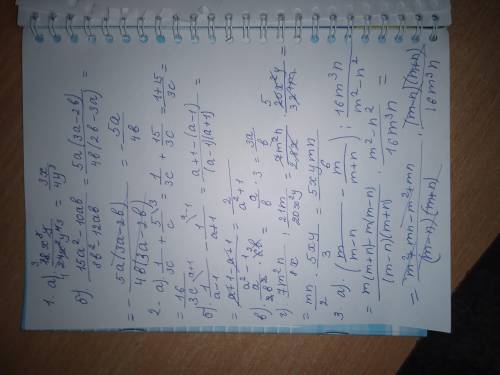 1. а) 12x⁸y / 24x⁷y⁴ = 3x / 4y³
б) 15a² - 10ab / 8b² - 12ab = 5a(3a - 2b) / 4b(2b - 3a) =
= - 5a(3a - 2b) / 4b(3a - 2b) = - 5a / 4b
2. а) 1/3c + 5/c = 1/3c + 15/3c = 1 + 15 / 3c =
= 16/3c
б) 1/a-1 - 1/a+1 = a + 1 - (a - 1) / (a - 1)(a + 1) =
= a + 1 - a + 1 / a² - 1 = 2 / a² + 1
в) a · 3 = 3a / b
г) 7m²n / 8x · 21m / 20x²y =
= mn · 5xy / 2 · 3 = 5xymn / 6
3. а) (m / m-n - m / m+n) : 16m³n / m² - n²
= m(m+n) - m(m-n) / (m-n)(m+n) · m² - n² / 16m³n =
= m² + mn - m² + mn / (m-n)(m+n) · (m-n)(m+n) / 16m³n